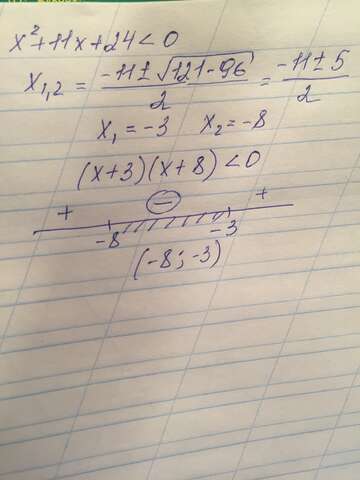 x²+11x+24<0
x₁,₂ = (-11±√(121-96))/2 = (-11±5)/2
x₁=-3 x₂=-8
(x+3)(x+8)<0
+ − +
-8 -3
(-8;-3)